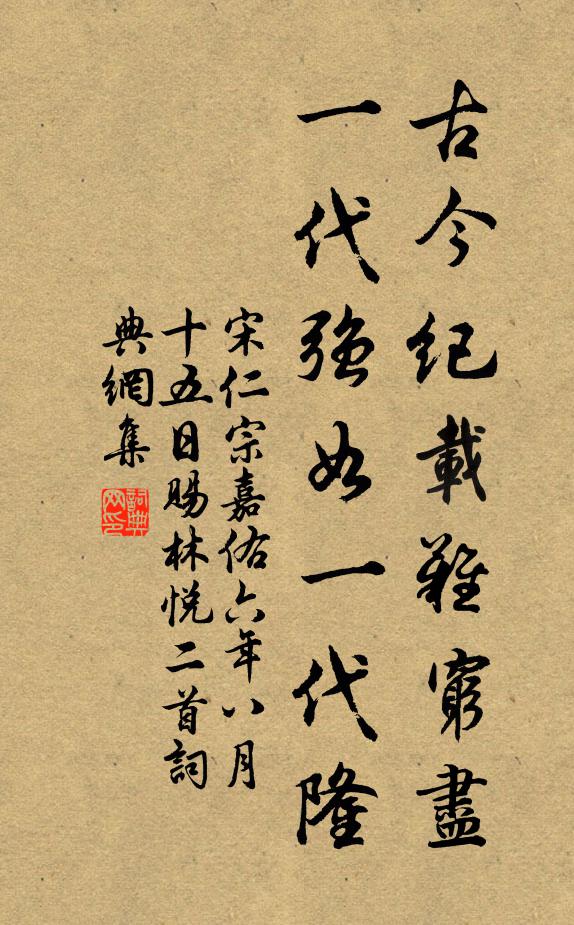 古今紀載難窮盡
一代強如一代隆
宋仁宗嘉佑六年八月
十五日賜林悅二首詞
典網集
詞典網印